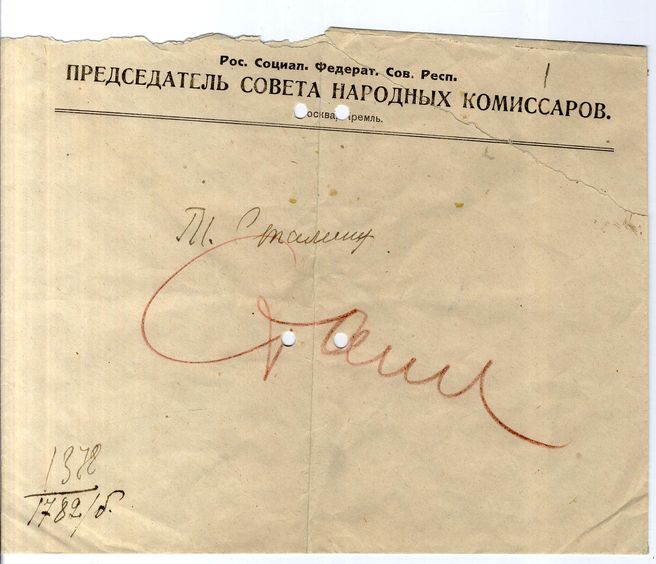 Рос. Социал. Федерат. Сов. Респ.
1
ПРЕДСЕДАТЕЛЬ СОВЕТА НАРОДНЫХ КОМИССАРОВ.
Москва, Кремль.
Т. Сталину
1378
1782/б.